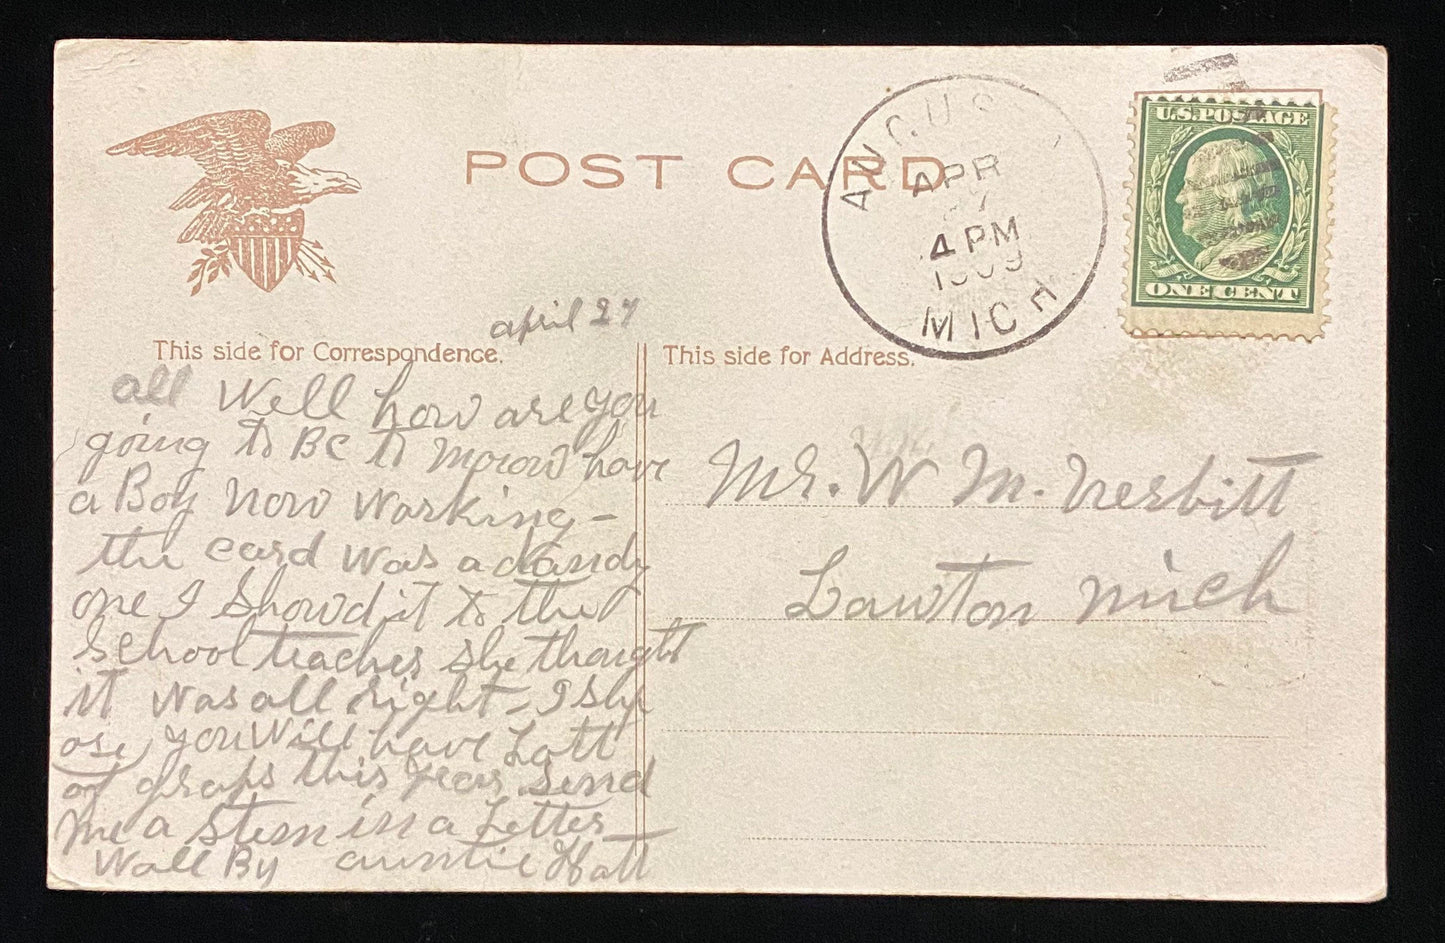 POST CARD
AUGUS
APR
27
4 PM
1909
MICH
U.S. POSTAGE
ONE CENT
april 27
This side for Correspondence.
This side for Address.
all Well how are you
going to BC to morow have
a Boy now Working -
the card was a dandy
one I Showd it to the
School teacher she thought
it was all right - I Sup
ose you Will have Lott
of graps this year Send
me a Stem in a Letter
Wall By auntie Hatt
Mr. W M. Nesbitt
Lawton Mich